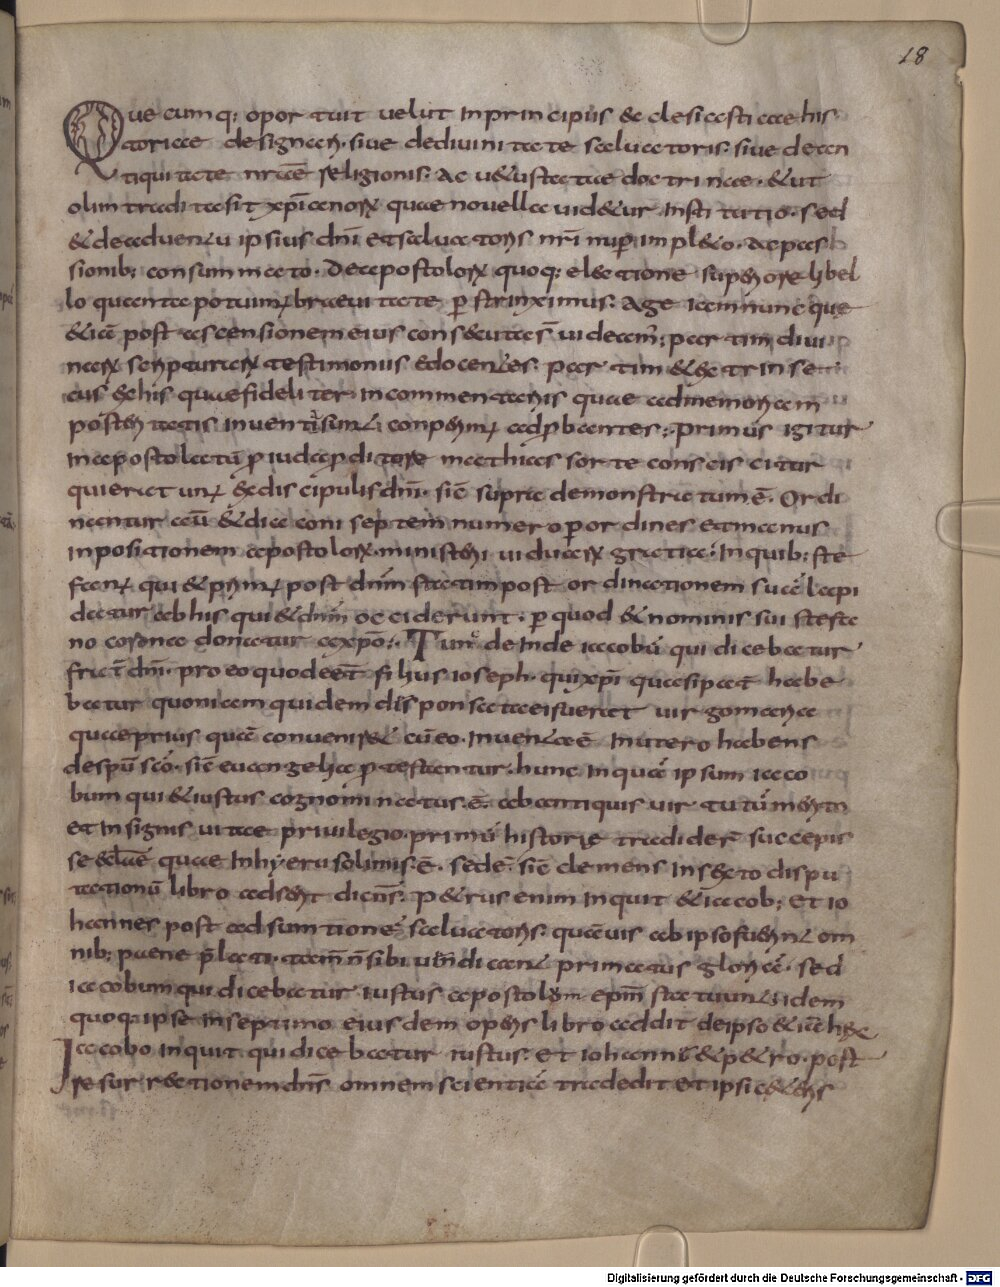 18
Que cumq; oportuit velut in principiis & clesiasticae his
toriae designari. sive de divinitate salvatoris. sive de an
tiquitate nr̄ae religionis. Ac vetustatae doctrinae. & ut
olim tradita sit xp̄ianorꝝ quae novella vid&ur institutio. sed
& de adventu ipsius dn̄i et salvatoris nr̄i nup̄ impl&o. ac pas
sionib; consummato. De apostolorꝝ quoq; electione superiore libel
lo quanta potuimꝰ braevitate p̄strinximus. Age iam nunc que
&iā post ascensionem eius consecuta s̄ videam̄; partim divi
narꝝ scripturarꝝ testimoniis edocentes. partim & extrinse
cus ex his quae fideliter in commentariis quae ad memoriam
posteritatis inventi sunt conperimꝰ ad p̄bantes; Primus igitur
in apostolatū p̄ iuda p̄ditore matthias sorte consciscitur
qui erat unꝰ ex discipulis dn̄i. sic̄ supra demonstratum ē. Ordi
nantur aū & diaconi septem numero p̄ ordines et manus
inpositionem apostolorꝝ. ministerii viduarꝝ gratia; In quib; ste
fanꝰ qui & primꝰ post dn̄m statim post ordinationem sucē lapi
datur ab his qui & dn̄m occiderunt. p̄ quod & nominis sui stefa
no corona donatur a xp̄o; Tunc deinde iacobū qui dicebatur
frat̄ dn̄i. pro eo quod eēt filius ioseph. qui xp̄i quasi pat̄ habe
batur quoniam quidem disponsatae ei fuerat virgo maria
quae prius quā convenir& cū eo. inventa ē in utero habens
de spū scō. sic̄ evangelia p̄testantur. hunc inquā ipsum iaco
bum qui & iustus cognominatus ē. ab antiquis virtutū merito
et insignis vitae privilegio. primū historie tradider̄ suscepis
se eccl̄ae quae in hyerusolimis ē. sedē. sic̄ clemens in sexto dispu
tationū libro adserit dicn̄s. P&rus enim inquit & iacob; et io
hannes post adsumtionē salvatoris. quāvis ab ipso fuerint om
nib; paene p̄lati. tam̄ n̄ sibi vindicant primatus gloriā. sed
iacobum qui dicebatur iustus apostolorum epm̄ statuunt; idem
quoq; ipse in septimo eiusdem operis libro addit de ipso &iā hęc
Iacobo inquit qui dicebatur iustus. et iohanni & p&ro. post
resurrectionem dn̄s omnem scientiā tradedit et ipsi c&eris
Digitalisierung gefördert durch die Deutsche Forschungsgemeinschaft - DFG